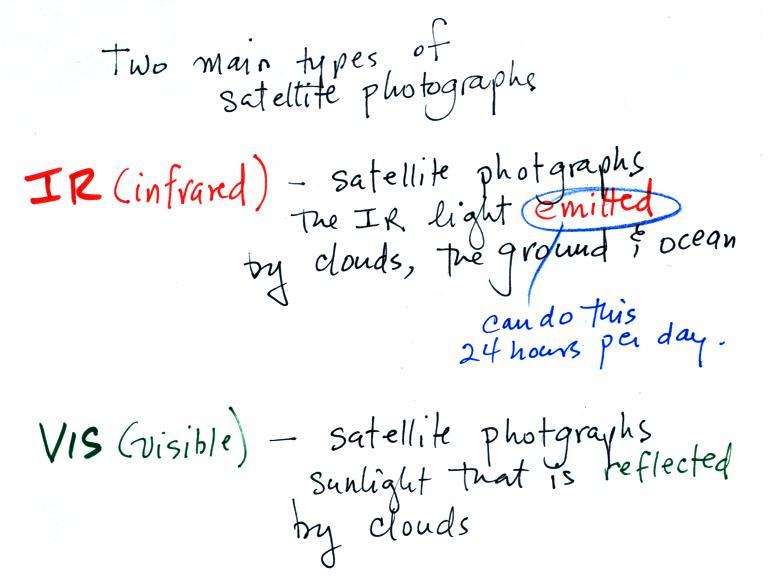 Two main types of
satellite photographs
IR (infrared) - satellite photgraphs
the IR light emitted
by clouds, the ground & ocean
can do this
24 hours per day.
VIS (visible) - satellite photgraphs
sunlight that is reflected
by clouds